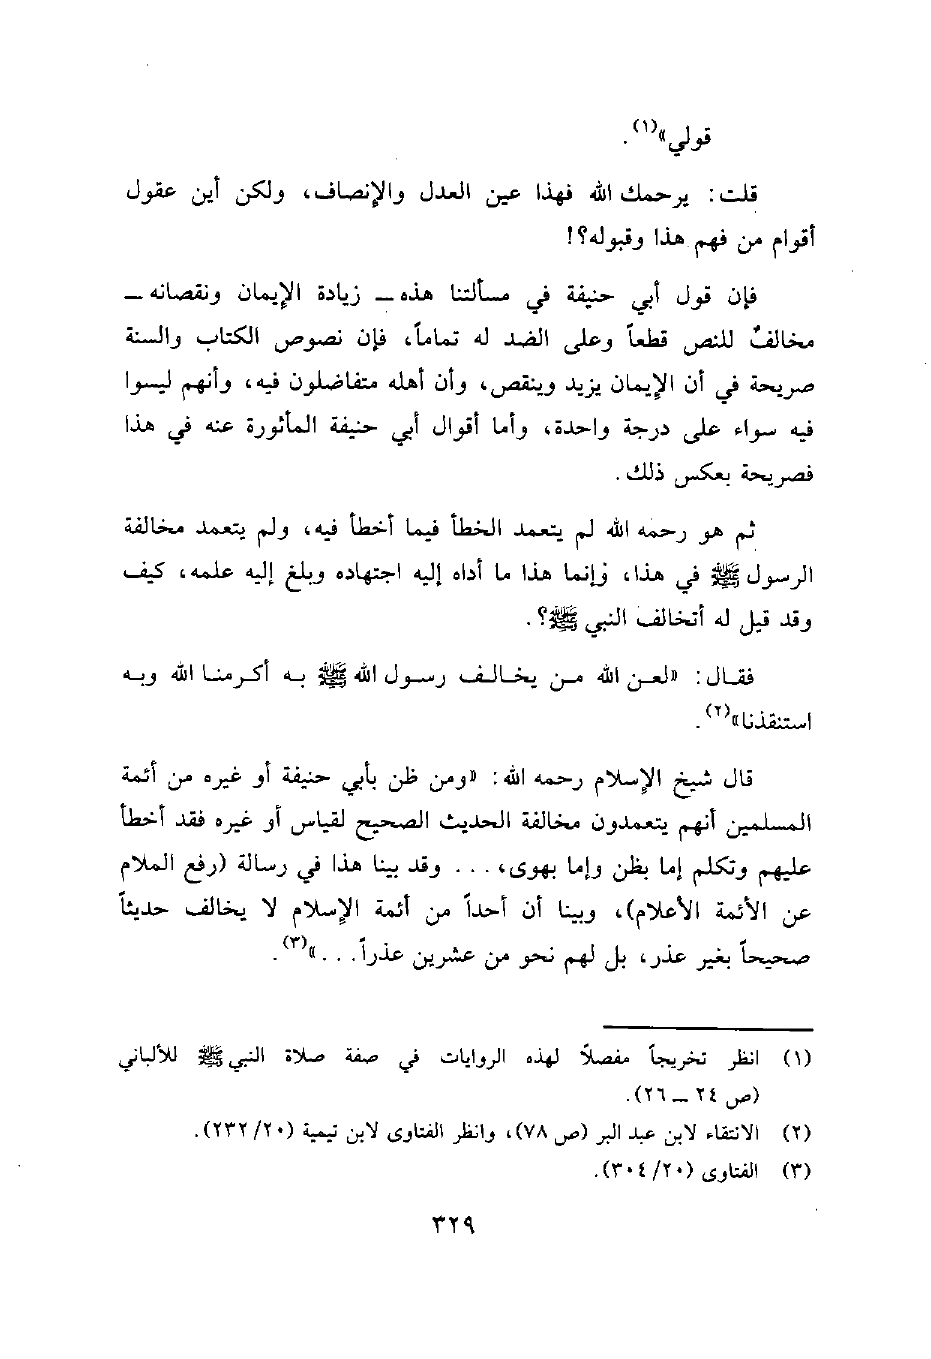 قولي»(١).
قلت: يرحمك الله فهذا عين العدل والإنصاف، ولكن أين عقول
أقوام من فهم هذا وقبوله؟!
فإن قول أبي حنيفة في مسألتنا هذه ــ زيادة الإيمان ونقصانه ــ
مخالفٌ للنص قطعاً وعلى الضد له تماماً، فإن نصوص الكتاب والسنة
صريحة في أن الإيمان يزيد وينقص، وأن أهله متفاضلون فيه، وأنهم ليسوا
فيه سواء على درجة واحدة، وأما أقوال أبي حنيفة المأثورة عنه في هذا
فصريحة بعكس ذلك.
ثم هو رحمه الله لم يتعمد الخطأ فيما أخطأ فيه، ولم يتعمد مخالفة
الرسول ﷺ في هذا، وإنما هذا ما أداه إليه اجتهاده وبلغ إليه علمه، كيف
وقد قيل له أتخالف النبي ﷺ؟.
فقال: «لعن الله من يخالف رسول الله ﷺ به أكرمنا الله وبه
استنقذنا»(٢).
قال شيخ الإسلام رحمه الله: «ومن ظن بأبي حنيفة أو غيره من أئمة
المسلمين أنهم يتعمدون مخالفة الحديث الصحيح لقياس أو غيره فقد أخطأ
عليهم وتكلم إما بظن وإما بهوى،... وقد بينا هذا في رسالة (رفع الملام
عن الأئمة الأعلام)، وبينا أن أحداً من أئمة الإسلام لا يخالف حديثاً
صحيحاً بغير عذر، بل لهم نحو من عشرين عذراً...»(٣).
(١) انظر تخريجاً مفصلاً لهذه الروايات في صفة صلاة النبي ﷺ للألباني
(ص ٢٤ ــ ٢٦).
(٢) الانتقاء لابن عبد البر (ص ٧٨)، وانظر الفتاوى لابن تيمية (٢٣٢/٢٠).
(٣) الفتاوى (٣٠٤/٢٠).
٣٢٩